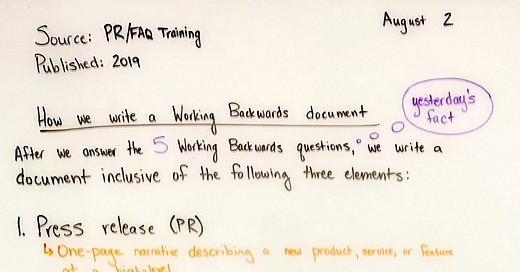 August 2
Source: PR/FAQ Training
Published: 2019
How we write a Working Backwards document
yesterday's
fact
After we answer the 5 Working Backwards questions, we write a
document inclusive of the following three elements:
1. Press release (PR)
↳ One-page narrative describing a new product, service, or feature
at a high-level